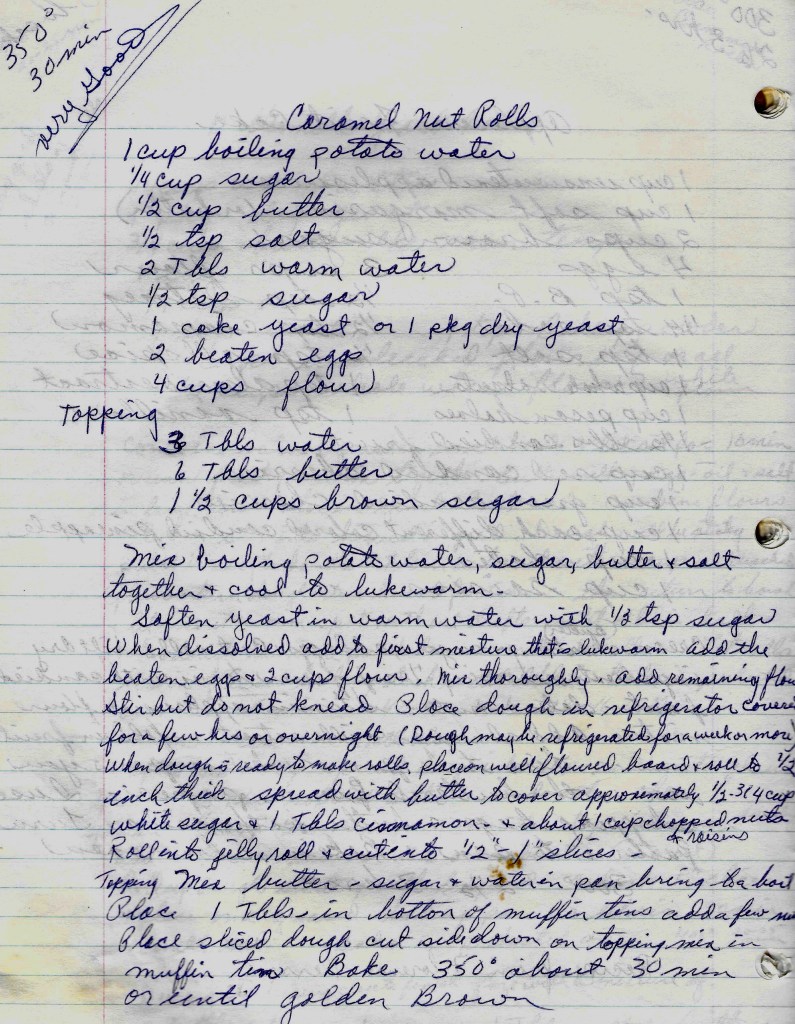 350°
30 min
very Good
Caramel Nut Rolls
1 cup boiling potato water
1/4 cup sugar
1/2 cup butter
1/2 tsp salt
2 Tbls warm water
1/2 tsp sugar
1 cake yeast or 1 pkg dry yeast
2 beaten eggs
4 cups flour
Topping
3 Tbls water
6 Tbls butter
1 1/2 cups brown sugar
Mix boiling potato water, sugar, butter & salt
together & cool to lukewarm.
Soften yeast in warm water with 1/2 tsp sugar
When dissolved add to first mixture that is lukewarm add the
beaten eggs & 2 cups flour. Mix thoroughly. add remaining flour
Stir but do not knead Place dough in refrigerator covered
for a few hrs or overnight (Dough may be refrigerated for a week or more)
When dough is ready to make rolls, place on well floured board & roll to 1/2
inch thick spread with butter to cover approximately 1/2-3/4 cup
white sugar & 1 Tbls cinnamon - & about 1 cup chopped nuts
& raisins
Roll into jelly roll & cut into 1/2" - 1" slices -
Topping Mix butter - sugar & water in pan bring to a boil
Place 1 Tbls - in bottom of muffin tins add a few
Place sliced dough cut side down on topping mix in
muffin tin Bake 350° about 30 min
or until golden Brown